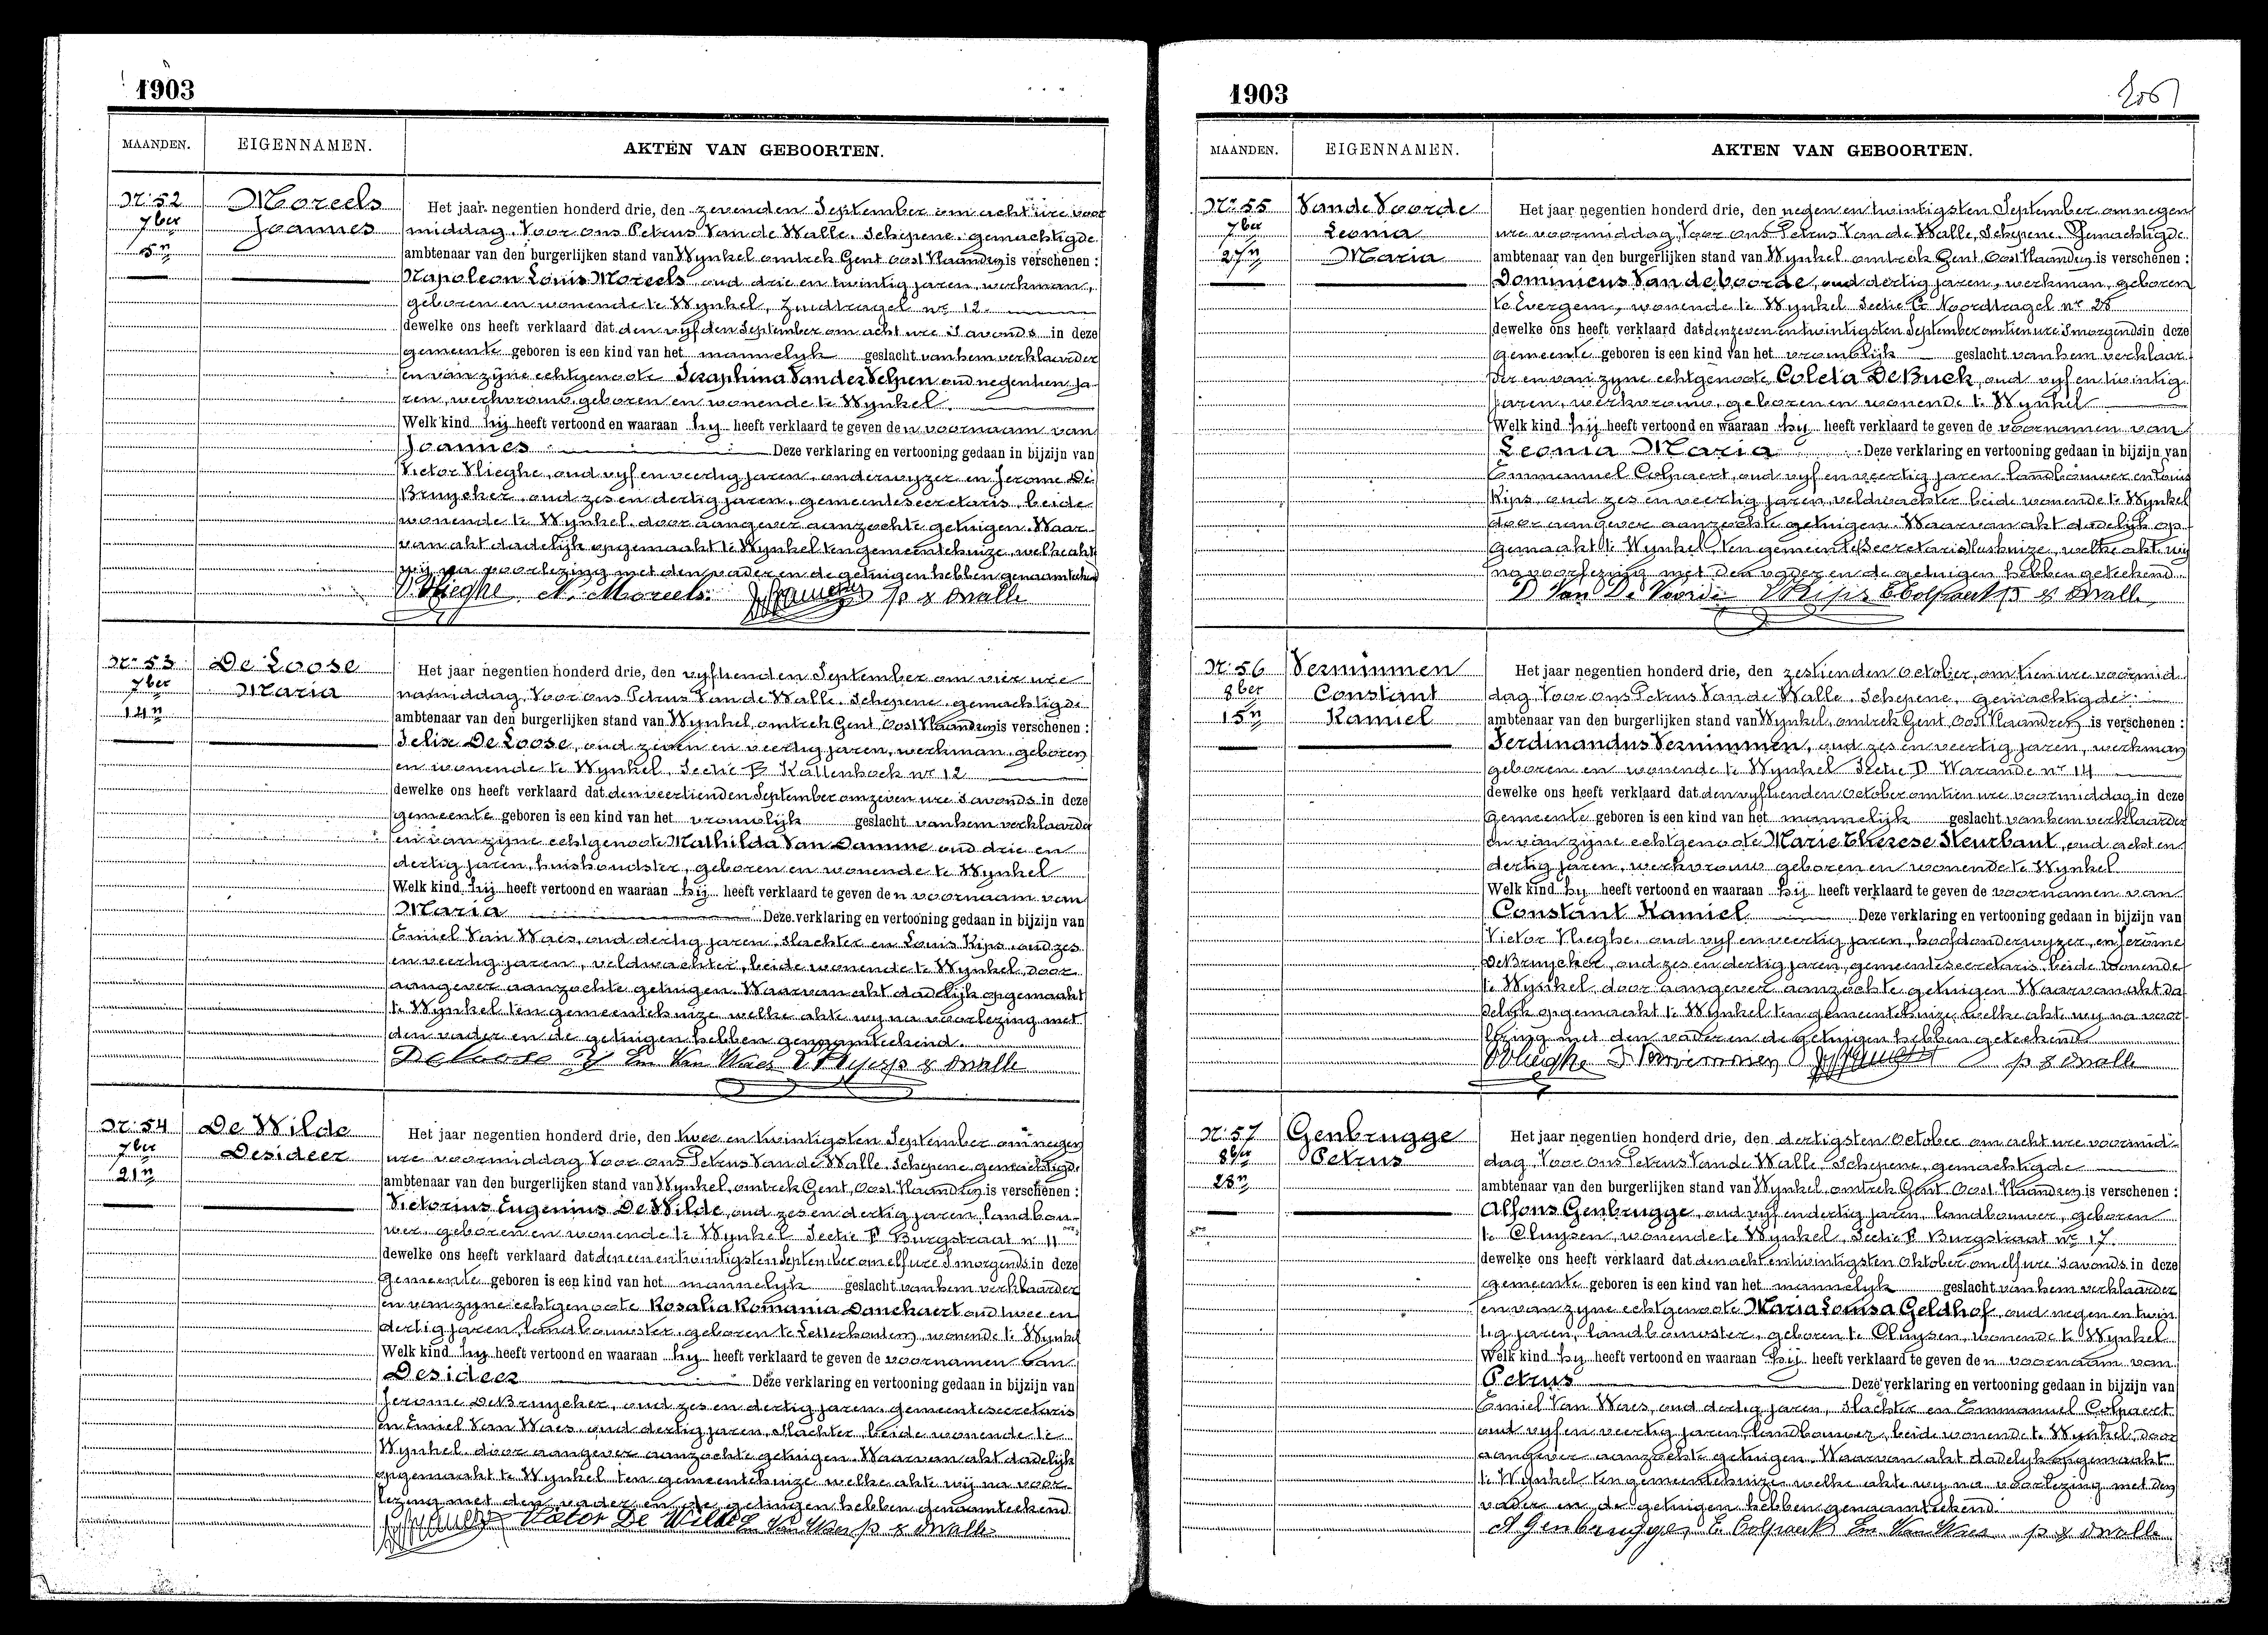 1903
MAANDEN. EIGENNAMEN. AKTEN VAN GEBOORTEN.
Nr 52 Moreels Het jaar negentien honderd drie, den zevenden September om acht ure voor
7ber Joannes middag. Voor ons Petrus Van de Walle, Schepene, gemachtigde
5n ambtenaar van den burgerlijken stand van Wynkel omtrek Gent, Oost Vlaanderen is verschenen :
Napoleon Louis Moreels oud drie en twintig jaren, werkman,
geboren en wonende te Wynkel, Zuidtragel nr 12.
dewelke ons heeft verklaard dat den vyfden September om acht ure 's avonds in deze
gemeente geboren is een kind van het mannelyk geslacht van hem verklaarder
en van zyne echtgenoote Seraphina Vander Velpen oud negentien ja-
ren, werkvrouw, geboren en wonende te Wynkel.
Welk kind hy heeft vertoond en waaraan hy heeft verklaard te geven den voornaam van
Joannes Deze verklaring en vertooning gedaan in bijzijn van
Victor Vlieghe, oud vyf en veertig jaren, onderwyzer en Jerome De
Bruycker, oud zes en dertig jaren, gemeentesecretaris, beide
wonende te Wynkel, door aangever aanzochte getuigen. Waar-
van akt dadelijk opgemaakt te Wynkel ten gemeentehuize, welke akt
wij na voorlezing met den vader en de getuigen hebben genaamteekend
V. Vlieghe N. Moreels p v d walle
Nr 53 De Loose Het jaar negentien honderd drie, den vyftienden September om vier ure
7ber Maria namiddag. Voor ons Petrus Van de Walle, Schepene, gemachtigde
14n ambtenaar van den burgerlijken stand van Wynkel, omtrek Gent, Oost Vlaanderen is verschenen :
Felix De Loose, oud zeven en veertig jaren, werkman, geboren
en wonende te Wynkel, Sectie B Kallenhoek nr 12
dewelke ons heeft verklaard dat den veertienden September om zeven ure 's avonds in deze
gemeente geboren is een kind van het vrouwlijk geslacht van hem verklaarder
en van zyne echtgenoote Mathilda Van Damme oud drie en
dertig jaren, huishoudster, geboren en wonende te Wynkel
Welk kind hij heeft vertoond en waaraan hij heeft verklaard te geven den voornaam van
Maria Deze verklaring en vertooning gedaan in bijzijn van
Emiel Van Waes, oud dertig jaren, slachter en Louis Kips, oud zes
en veertig jaren, veldwachter, beide wonende te Wynkel, door
aangever aanzochte getuigen. Waarvan akt dadelijk opgemaakt
te Wynkel ten gemeentehuize welke akte wy na voorlezing met
den vader en de getuigen hebben genaamteekend.
De Loose F Em Van Waes L Kips p v d walle
Nr 54 De Wilde Het jaar negentien honderd drie, den twee en twintigsten September om negen
7ber Desideer ure voormiddag. Voor ons Petrus Van de Walle, Schepene gemachtigde
21n ambtenaar van den burgerlijken stand van Wynkel, omtrek Gent, Oost Vlaanderen is verschenen :
Victorius Eugenius De Wilde, oud zes en dertig jaren, landbou-
wer, geboren en wonende te Wynkel Sectie Burgstraat nr 11
dewelke ons heeft verklaard dat den een en twintigsten September om elf ure 's morgends in deze
gemeente geboren is een kind van het mannelyk geslacht van hem verklaarder
en van zyne echtgenoote Rosalia Romania Danckaert oud twee en
dertig jaren, landbouwster, geboren te Letterhoutem, wonende te Wynkel
Welk kind hy heeft vertoond en waaraan hy heeft verklaard te geven de voornamen van
Desideer Deze verklaring en vertooning gedaan in bijzijn van
Jerome De Bruycker, oud zes en dertig jaren, gemeentesecretaris
en Emiel Van Waes, oud dertig jaren, slachter, beide wonende te
Wynkel, door aangever aanzochte getuigen. Waarvan akt dadelijk
opgemaakt te Wynkel ten gemeentehuize welke akte wij na voor-
lezing met den vader en de getuigen hebben genaamteekend.
Victor De Wilde Em Van Waes p v d walle
1903
MAANDEN. EIGENNAMEN. AKTEN VAN GEBOORTEN.
Nr 55 Van de Voorde Het jaar negentien honderd drie, den negen en twintigsten September om negen
7ber Leonia ure voormiddag. Voor ons Petrus Van de Walle, Schepene, Gemachtigde
27n Maria ambtenaar van den burgerlijken stand van Wynkel omtrek Gent, Oost Vlaanderen is verschenen :
Dominicus Van de Voorde, oud dertig jaren, werkman, geboren
te Evergem, wonende te Wynkel Sectie C Noordtragel nr 28
dewelke ons heeft verklaard dat den zeven en twintigsten September om tien ure 's morgends in deze
gemeente geboren is een kind van het vrouwlyk geslacht van hem verklaar-
der en van zyne echtgenoote Coleta De Buck, oud vyf en twintig
jaren, werkvrouw, geboren en wonende te Wynkel
Welk kind hij heeft vertoond en waaraan hy heeft verklaard te geven de voornamen van
Leonia Maria Deze verklaring en vertooning gedaan in bijzijn van
Emmanuel Colpaert, oud vyf en veertig jaren, landbouwer en Louis
Kips, oud zes en veertig jaren, veldwachter beide wonende te Wynkel
door aangever aanzochte getuigen. Waarvan akt dadelijk op-
gemaakt te Wynkel, ten gemeente welke akte wij
na voorlezing met den vader en de getuigen hebben geteekend.
D Van De Voorde L Kips E Colpaert p v d walle
Nr 56 Vernimmen Het jaar negentien honderd drie, den zestienden October, om tien ure voormid-
8ber Constant dag. Voor ons Petrus Van de Walle, Schepene, gemachtigde
15n Kamiel ambtenaar van den burgerlijken stand van Wynkel, omtrek Gent, Oost Vlaanderen is verschenen :
Ferdinandus Vernimmen, oud zes en veertig jaren, werkman
geboren en wonende te Wynkel Sectie D Warande nr 14
dewelke ons heeft verklaard dat den vyftienden October om tien ure voormiddag in deze
gemeente geboren is een kind van het mannelijk geslacht van hem verklaarder
en van zyne echtgenoote Marie Therese Steurbaut, oud acht en
dertig jaren, werkvrouw geboren en wonende te Wynkel
Welk kind hy heeft vertoond en waaraan hij heeft verklaard te geven de voornamen van
Constant Kamiel Deze verklaring en vertooning gedaan in bijzijn van
Victor Vlieghe, oud vyf en veertig jaren, hoofdonderwyzer, en Jerôme
De Bruycker, oud zes en dertig jaren, gemeentesecretaris, beide wonende
te Wynkel, door aangever aanzochte getuigen Waarvan akt da-
delyk opgemaakt te Wynkel ten gemeentehuize welke akte wy na voor-
lezing met den vader en de getuigen hebben geteekend
V Vlieghe F Vernimmen p v d walle
Nr 57 Genbrugge Het jaar negentien honderd drie, den dertigsten October om acht ure voormid-
8ber Petrus dag. Voor ons Petrus Van de Walle, Schepene, gemachtigde
28n ambtenaar van den burgerlijken stand van Wynkel, omtrek Gent Oost Vlaanderen is verschenen :
Alfons Genbrugge, oud vyf en dertig jaren, landbouwer, geboren
te Cluysen, wonende te Wynkel, Sectie Burgstraat nr 17
dewelke ons heeft verklaard dat den acht en twintigsten Oktober om elf ure 's avonds in deze
gemeente geboren is een kind van het mannelyk geslacht van hem verklaarder
en van zyne echtgenoote Maria Louisa Geldhof, oud negen en twin-
tig jaren, landbouwster, geboren te Cluysen, wonende te Wynkel
Welk kind hy heeft vertoond en waaraan hij heeft verklaard te geven den voornaam van
Petrus Deze verklaring en vertooning gedaan in bijzijn van
Emiel Van Waes, oud dertig jaren, slachter en Emmanuel Colpaert
oud vyf en veertig jaren landbouwer, beide wonende te Wynkel, door
aangever aanzochte getuigen. Waarvan akt dadelyk opgemaakt
te Wynkel ten gemeentehuize welke akte wy na voorlezing met den
vader en de getuigen hebben genaamteekend.
A Genbrugge, E Colpaert Em Van Waes p v d walle